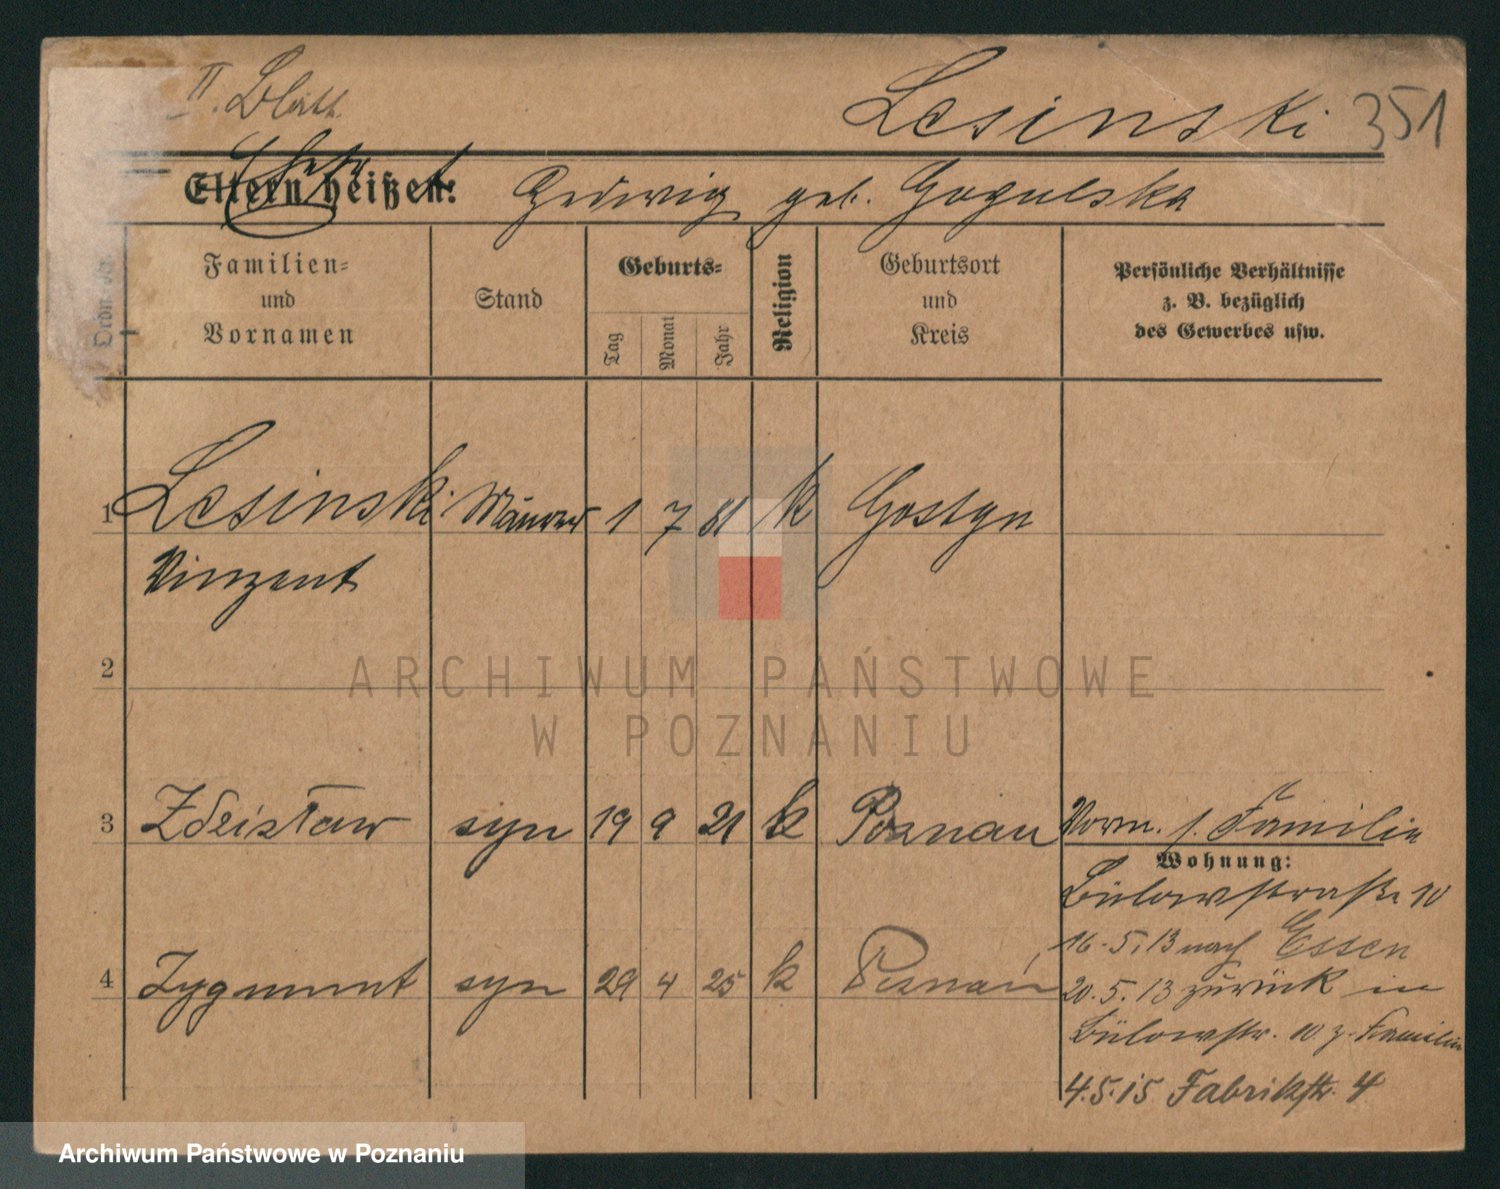 II. Blatt.
Lesinski 351
Eltern heißen: Hedwig geb. Gogulska
Ordn Nr.
Familien-
und
Vornamen
Stand
Geburts-
Tag
Monat
Jahr
Religion
Geburtsort
und
Kreis
Persönliche Verhältnisse
z. B. bezüglich
des Gewerbes usw.
1 Lesinski Maurer 1 7 81 k Gostyn
Vinzent
2
ARCHIWUM PAŃSTWOWE
W POZNANIU
3 Zdzisław syn 19 9 21 k Poznań
4 Zygmunt syn 29 4 25 k Poznań
Vorm. s. Familie
Wohnung:
Bülowstraße 10
16.5.13 nach Essen
20.5.13 zurück in
Bülowstr. 10 z. Familie
4.5.15 Fabrikstr. 4
Archiwum Państwowe w Poznaniu